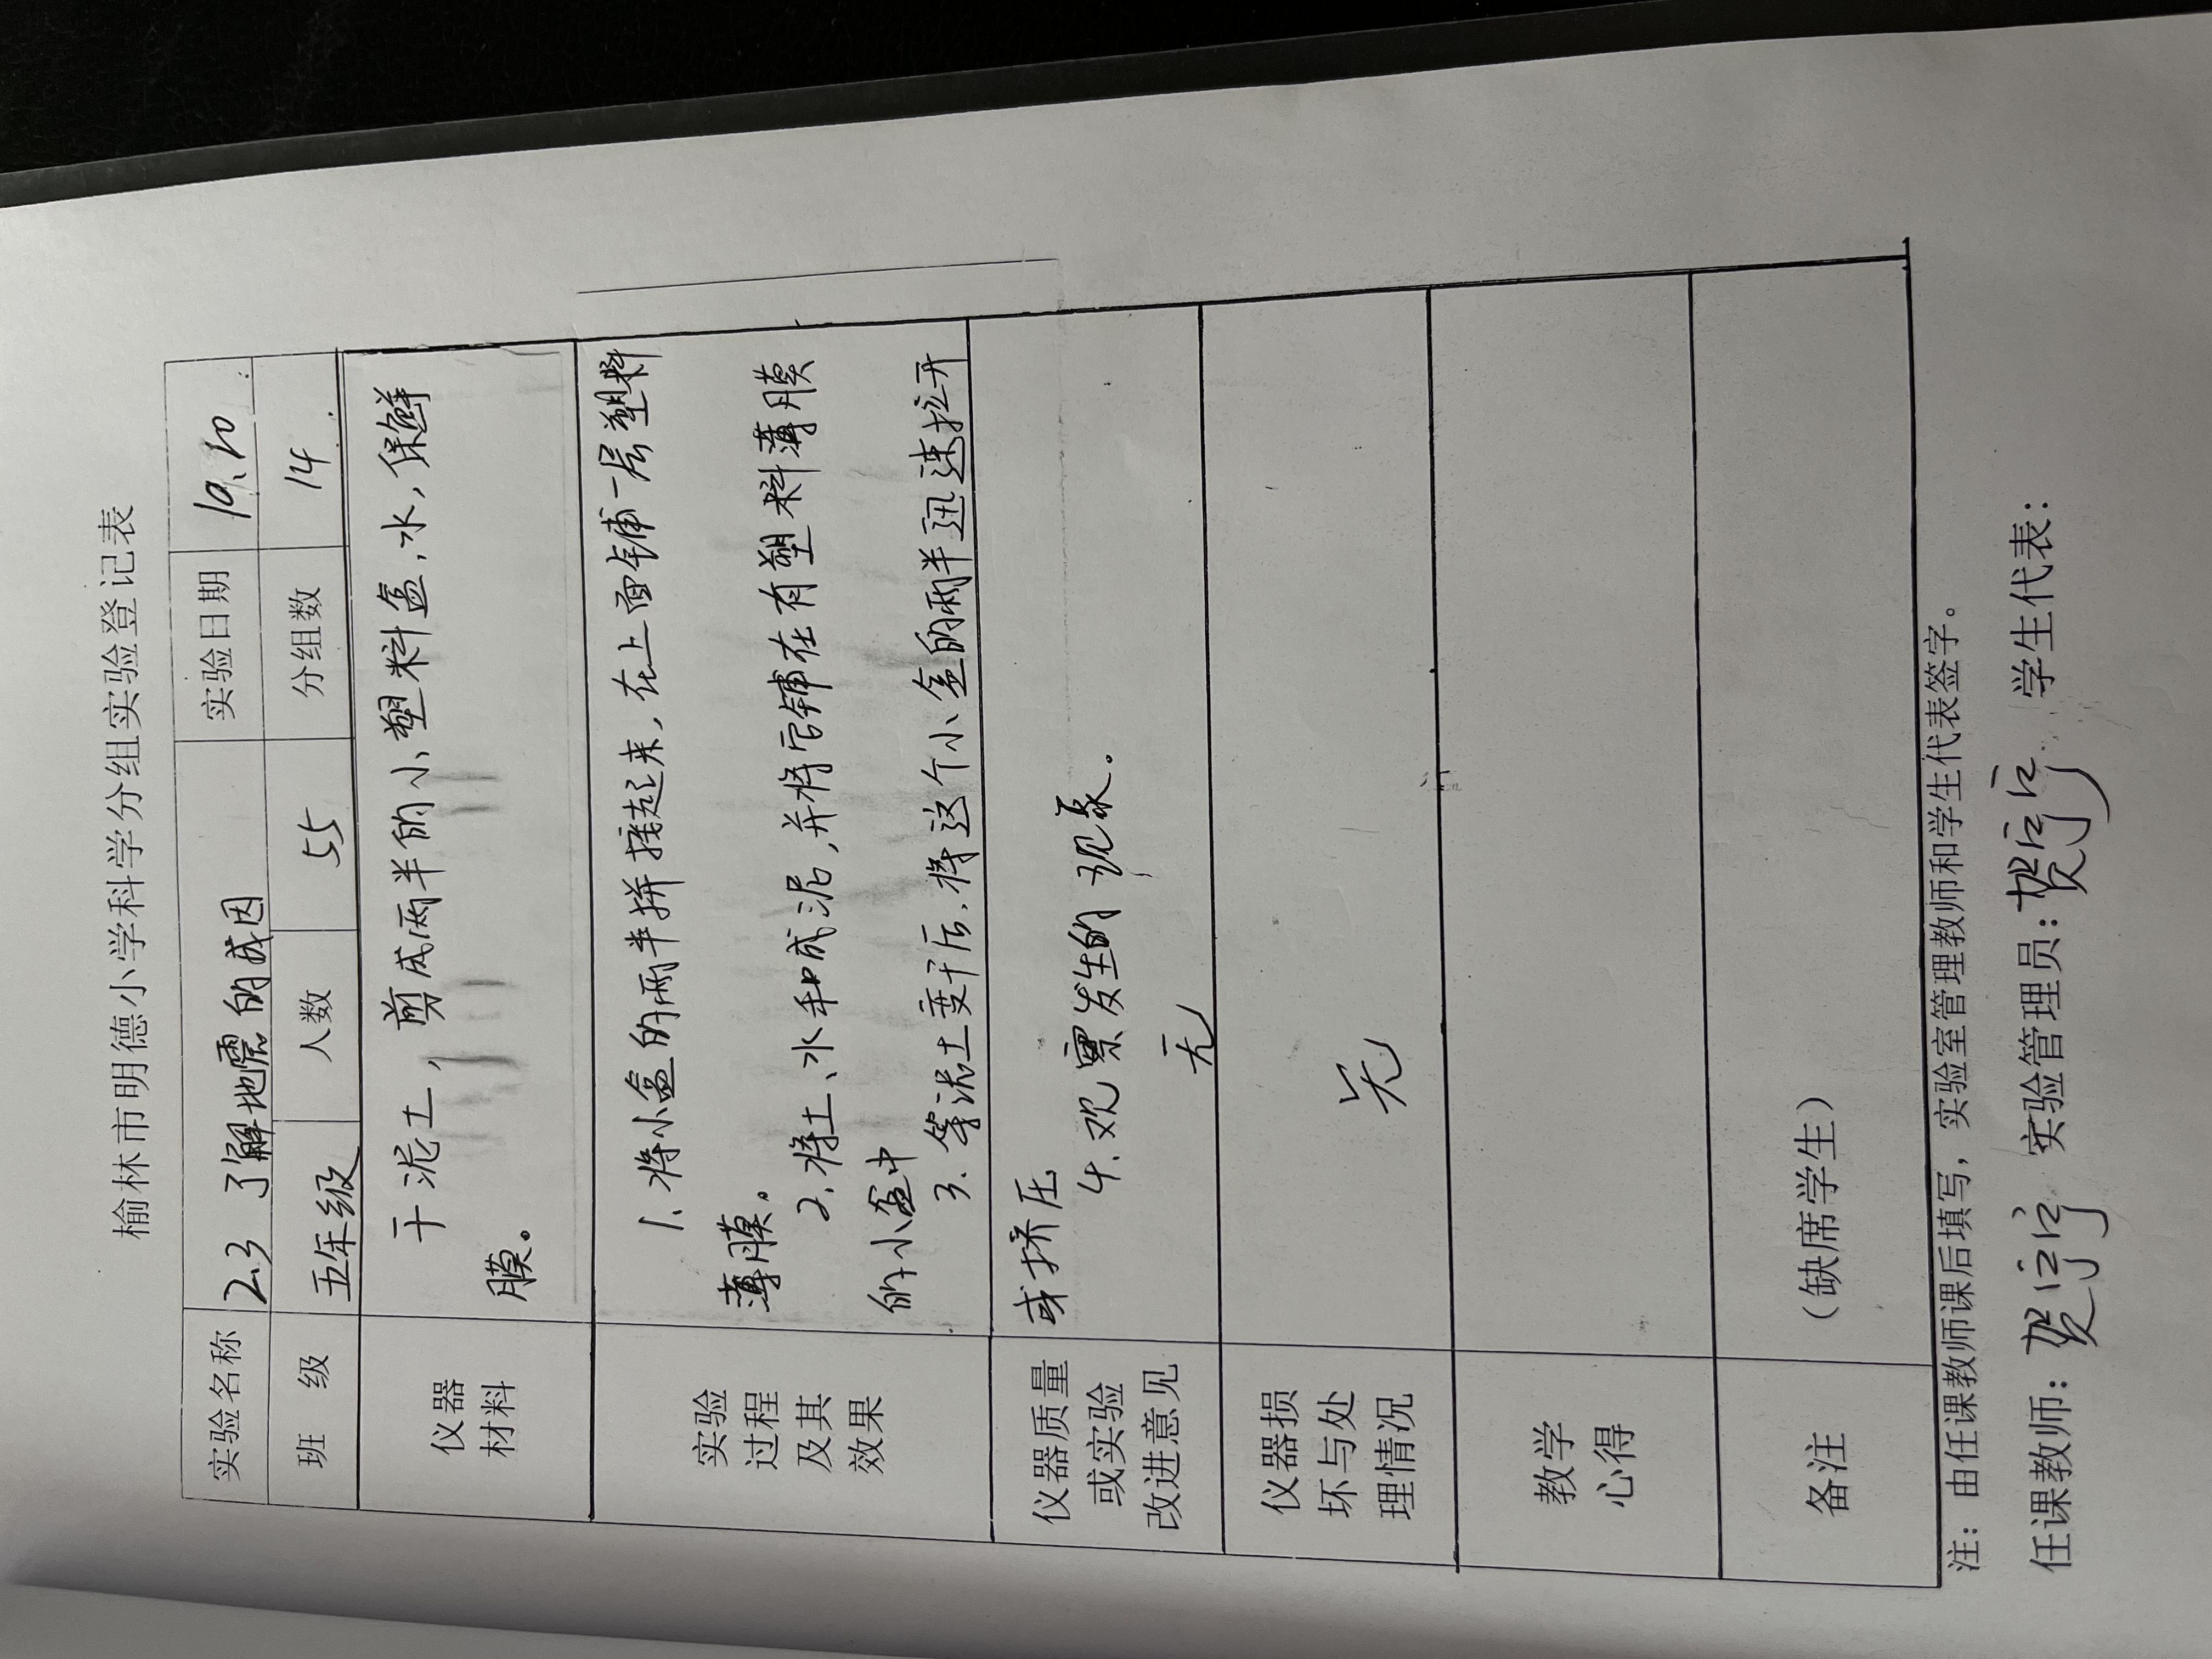 榆林市明德小学科学分组实验登记表
实验名称 2.3 了解地震的成因 实验日期 10.20
班 级 五年级 人数 55 分组数 14
仪器
材料
干泥土，剪成两半的小塑料盒，水，保鲜
膜。
实验
过程
及其
效果
1. 将小盒的两半拼接起来，在上面铺一层塑料
薄膜。
2. 将土、水和成泥，并将它铺在有塑料薄膜
的小盒中
3. 等泥土变干后，将这个小盒的两半迅速拉开
或挤压
4. 观察发生的现象。
仪器质量
或实验
改进意见
无
仪器损
坏与处
理情况
无
教学
心得
备注
（缺席学生）
注：由任课教师课后填写，实验室管理教师和学生代表签字。
任课教师：贺 实验管理员：贺 学生代表：